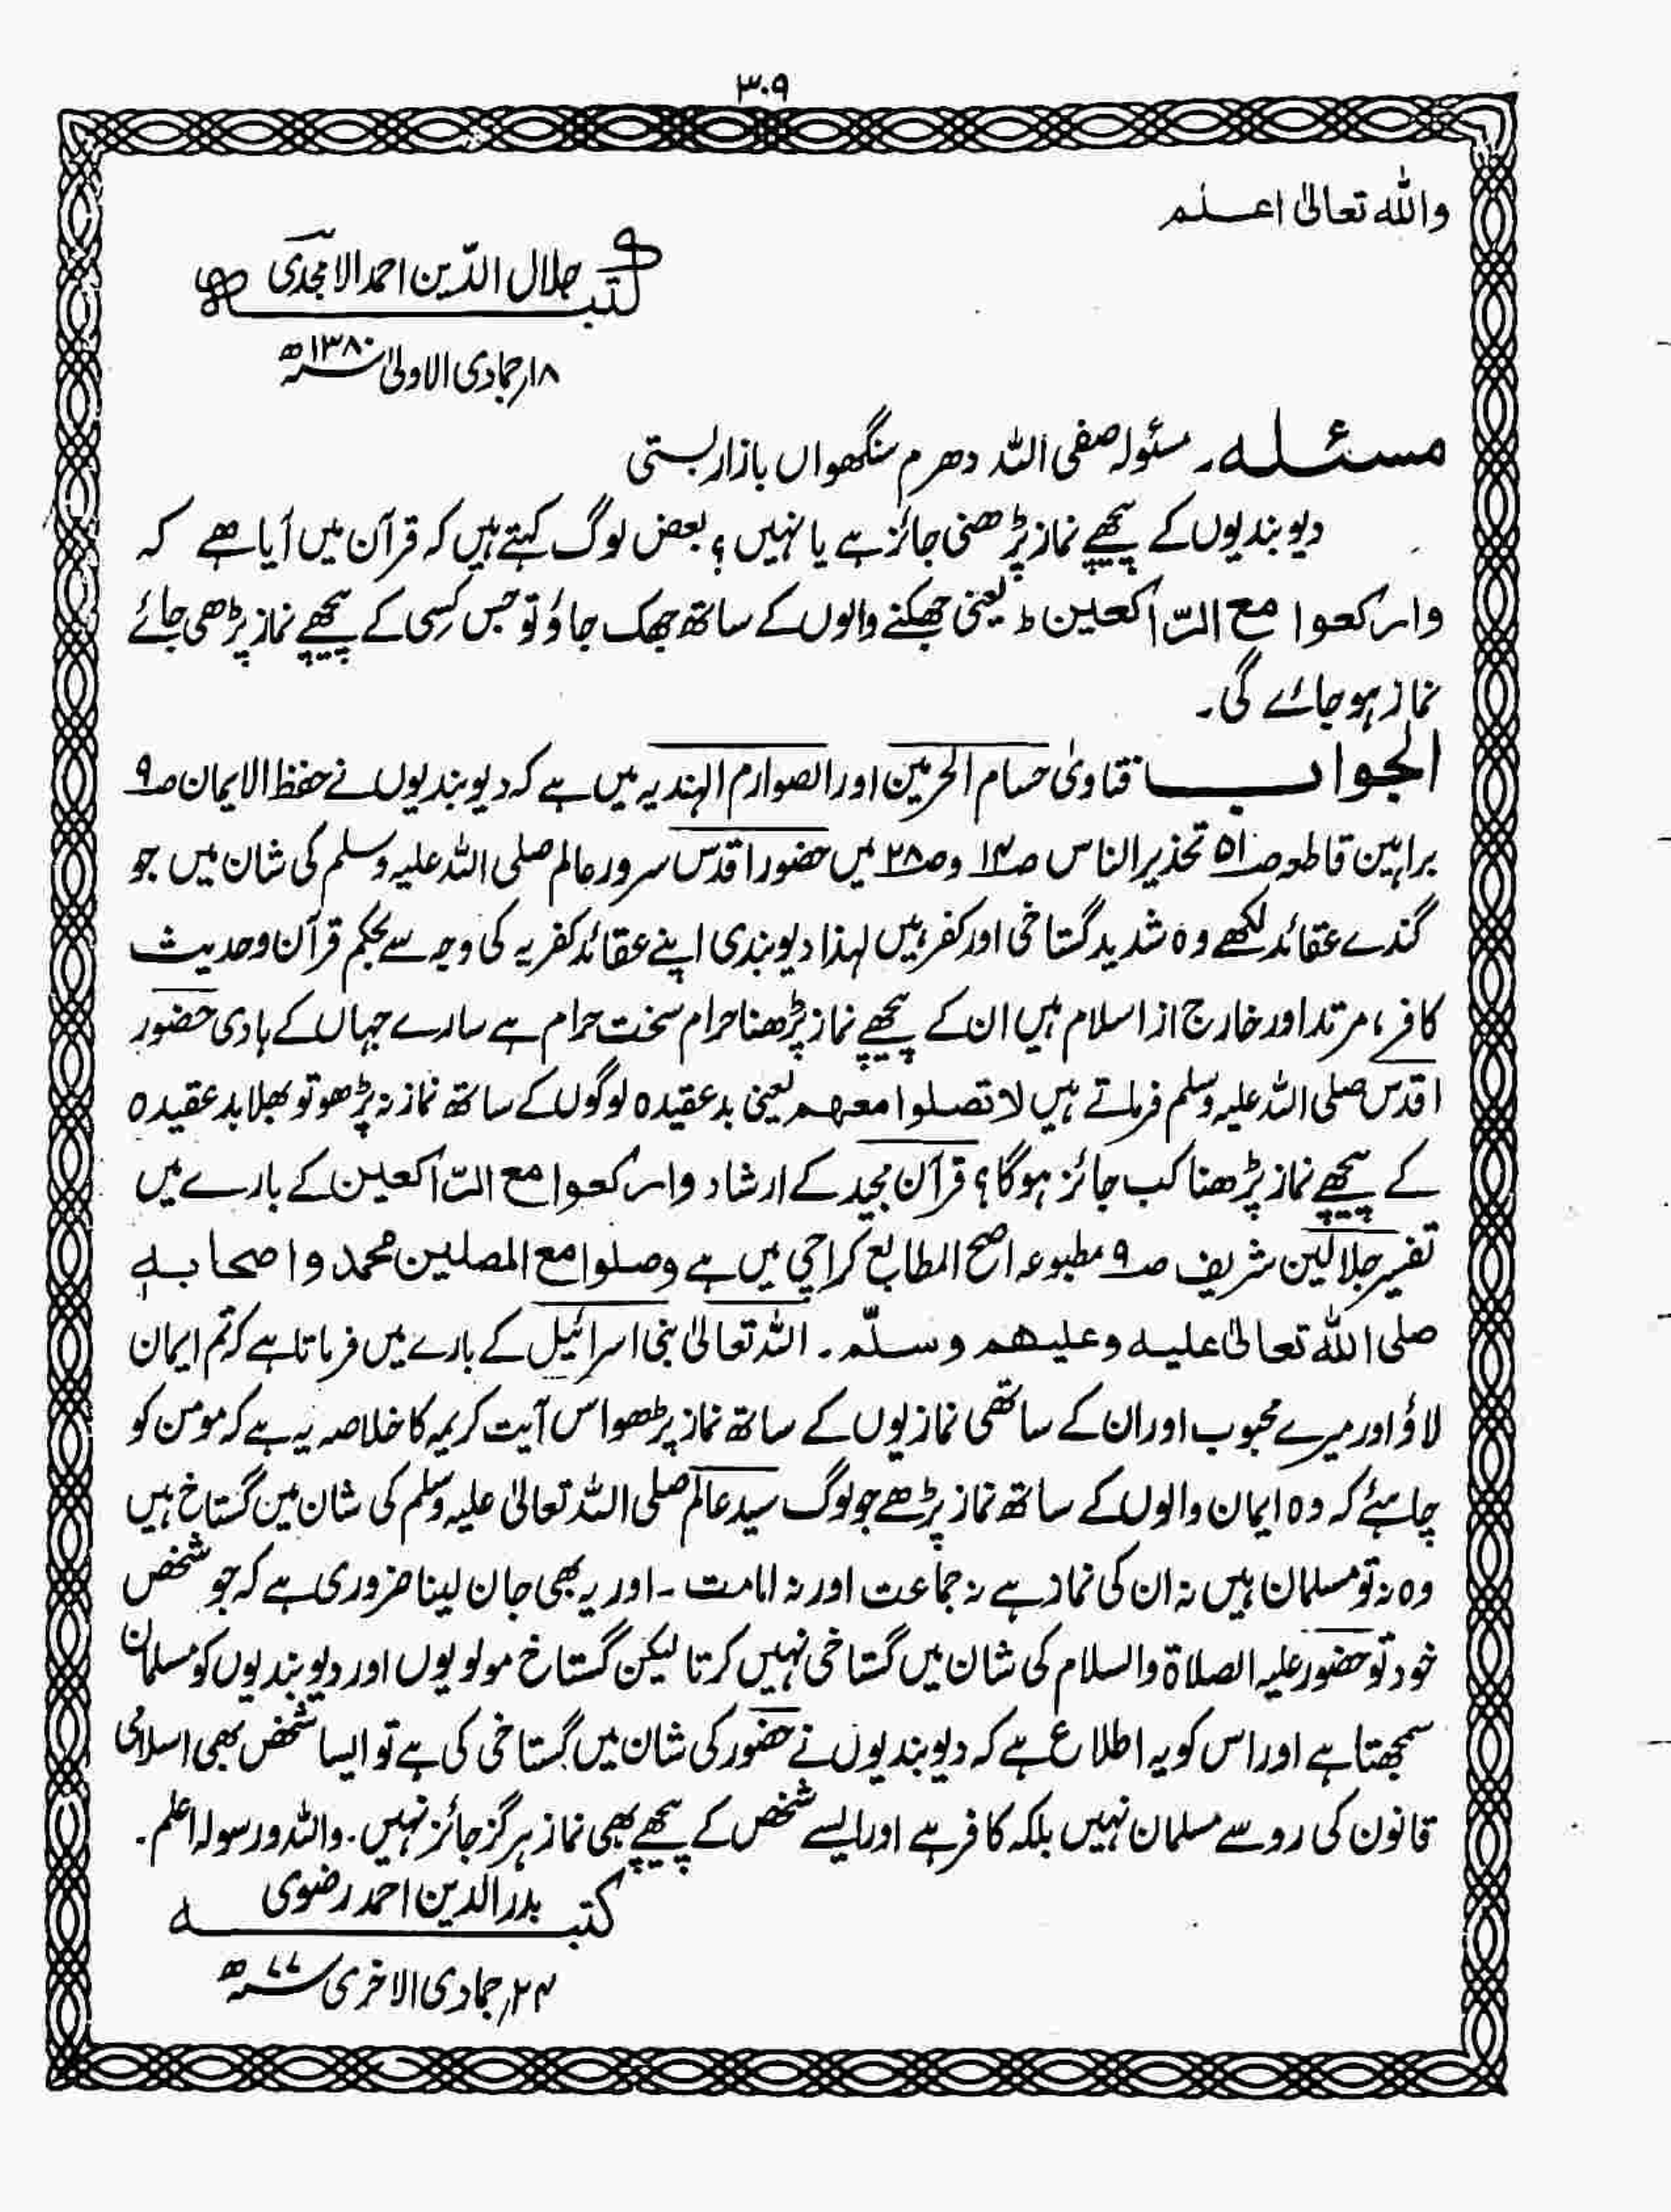 ۳۰۹
واللہ تعالیٰ اعلم
کتبہ جلال الدّین احمد الامجدی
۱۸ رجمادی الاولیٰ ۱۳۸۰ھ
مسئلہ۔ مسئولہ صفی اللہ دھرم سنگھواں بازار بستی
دیوبندیوں کے پیچھے نماز پڑھنی جائز ہے یا نہیں؟ بعض لوگ کہتے ہیں کہ قرآن میں آیا ہے کہ
وارکعوا مع الرّاکعین ط یعنی جھکنے والوں کے ساتھ جھک جاؤ تو جس کسی کے پیچھے نماز پڑھی جائے
نماز ہو جائے گی۔
الجواب فتاویٰ حسام الحرمین اور الصوارم الہندیہ میں ہے کہ دیوبندیوں نے حفظ الایمان صـ۹
براہین قاطعہ صـ۵۱ تحذیر الناس صـ۱۴ و صـ۲۸ میں حضور اقدس سرور عالم صلی اللہ علیہ وسلم کی شان میں جو
گندے عقائد لکھے وہ شدید گستاخی اور کفر ہیں لہذا دیوبندی اپنے عقائد کفریہ کی وجہ سے بحکم قرآن و حدیث
کافر، مرتد اور خارج از اسلام ہیں ان کے پیچھے نماز پڑھنا حرام سخت حرام ہے سارے جہاں کے ہادی حضور
اقدس صلی اللہ علیہ وسلم فرماتے ہیں لا تصلوا معھم یعنی بدعقیدہ لوگوں کے ساتھ نماز نہ پڑھو تو بھلا بدعقیدہ
کے پیچھے نماز پڑھنا کب جائز ہوگا؟ قرآن مجید کے ارشاد وارکعوا مع الرّاکعین کے بارے میں
تفسیر جلالین شریف صـ۹ مطبوعہ اصح المطابع کراچی میں ہے وصلوا مع المصلین محمد و اصحابہٖ
صلی اللہ تعالیٰ علیہ وعلیھم وسلّم۔ اللہ تعالیٰ بنی اسرائیل کے بارے میں فرماتا ہے کہ تم ایمان
لاؤ اور میرے محبوب اور ان کے ساتھی نمازیوں کے ساتھ نماز پڑھو اس آیت کریمہ کا خلاصہ یہ ہے کہ مومن کو
چاہئے کہ وہ ایمان والوں کے ساتھ نماز پڑھے جو لوگ سید عالم صلی اللہ تعالیٰ علیہ وسلم کی شان میں گستاخ ہیں
وہ نہ تو مسلمان ہیں نہ ان کی نماز ہے نہ جماعت اور نہ امامت ۔ اور یہ بھی جان لینا ضروری ہے کہ جو شخص
خود تو حضور علیہ الصلاۃ والسلام کی شان میں گستاخی نہیں کرتا لیکن گستاخ مولویوں اور دیوبندیوں کو مسلمان
سمجھتا ہے اور اس کو یہ اطلاع ہے کہ دیوبندیوں نے حضور کی شان میں گستاخی کی ہے تو ایسا شخص بھی اسلامی
قانون کی رو سے مسلمان نہیں بلکہ کافر ہے اور ایسے شخص کے پیچھے بھی نماز ہرگز جائز نہیں۔ واللہ ورسولہ اعلم۔
کتبہ بدر الدین احمد رضوی
۲۴ رجمادی الاخریٰ ۷۷ھ